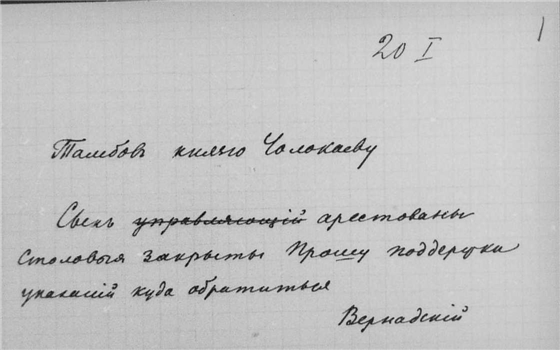 1
20 I
Тамбовъ князю Чолокаеву
Сынъ управляющій арестованы
столовыя закрыты Прошу поддержки
указаній куда обратиться
Вернадскій